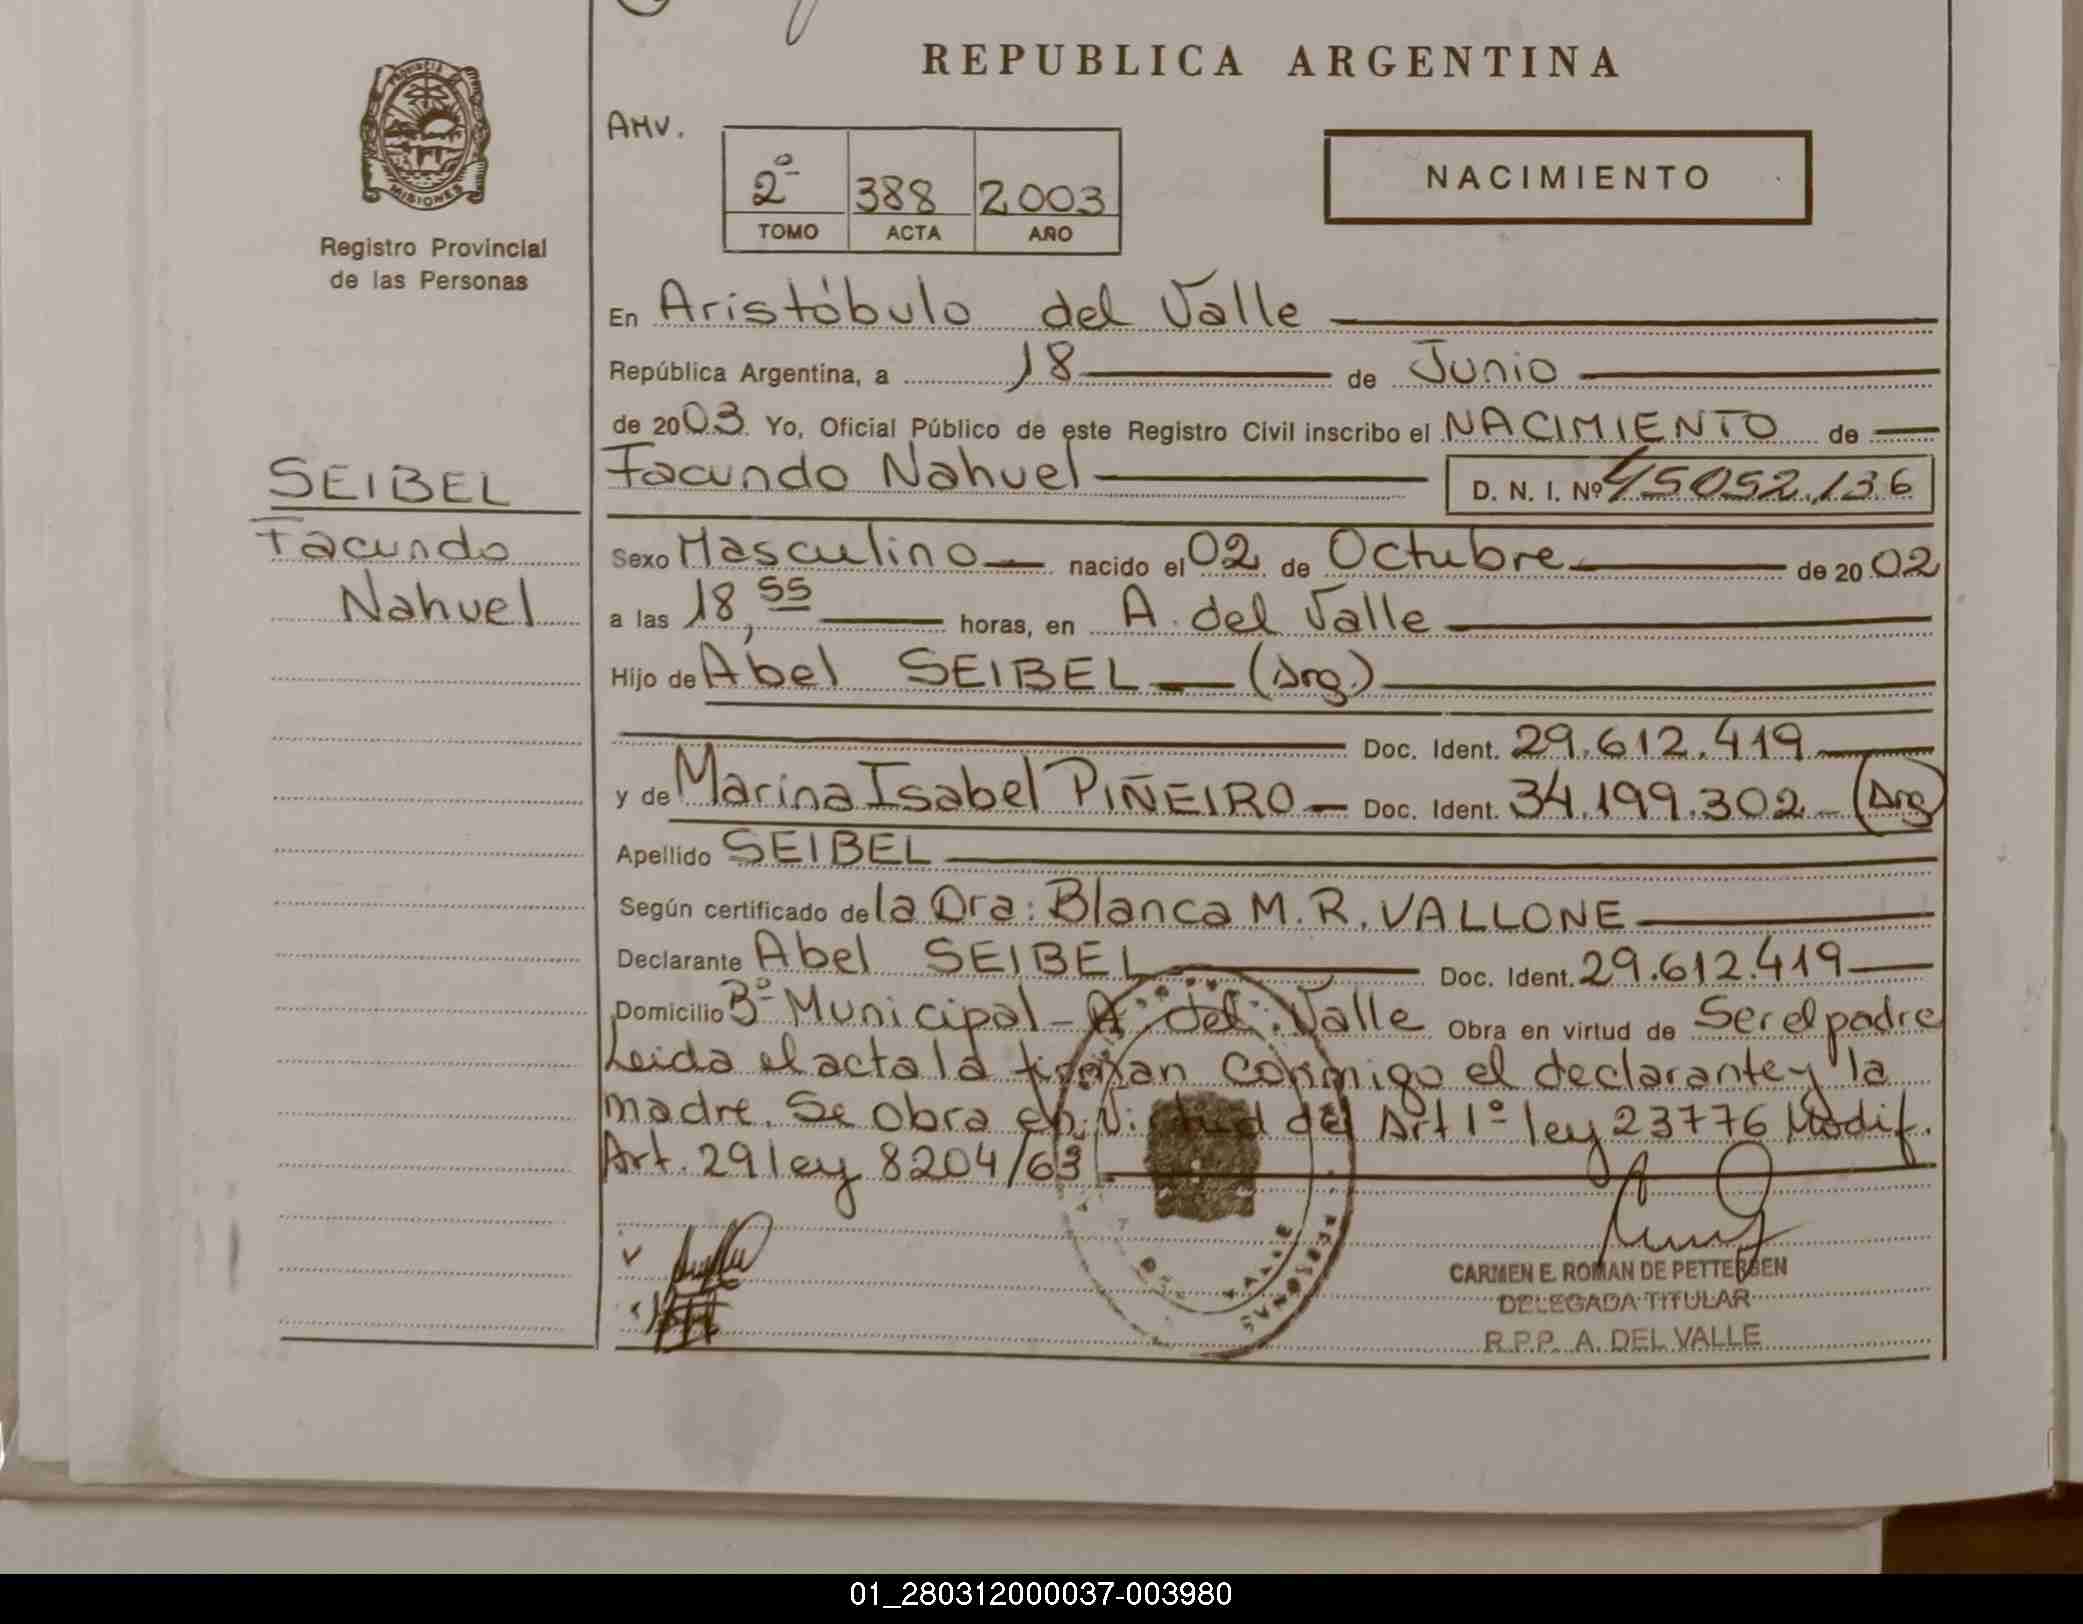 REPUBLICA ARGENTINA
PROVINCIA
MISIONES
Registro Provincial
de las Personas
AMV.
2º 388 2.003
TOMO ACTA AÑO
NACIMIENTO
En Aristóbulo del Valle
República Argentina, a 18 de Junio
de 2003. Yo, Oficial Público de este Registro Civil inscribo el NACIMIENTO de
SEIBEL
Facundo
Nahuel
Facundo Nahuel D. N. I. Nº 45052.136
Sexo Masculino nacido el 02 de Octubre de 2002
a las 18,55 horas, en A. del Valle
Hijo de Abel SEIBEL (Arg.)
Doc. Ident. 29.612.419
y de Marina Isabel PIÑEIRO Doc. Ident. 34.199.302 (Arg
Apellido SEIBEL
Según certificado de la Dra: Blanca M. R. VALLONE
Declarante Abel SEIBEL Doc. Ident. 29.612.419
Domicilio Bº Municipal - A. del Valle Obra en virtud de Ser el padre
Leida el acta la firman conmigo el declarante y la
madre. Se obra en virtud del Art 1º ley 23776 Modif.
Art. 29 ley 8204/63
PERSONAS
VALLE
CARMEN E. ROMAN DE PETTERSEN
DELEGADA TITULAR
R.P.P. A. DEL VALLE
01_280312000037-003980